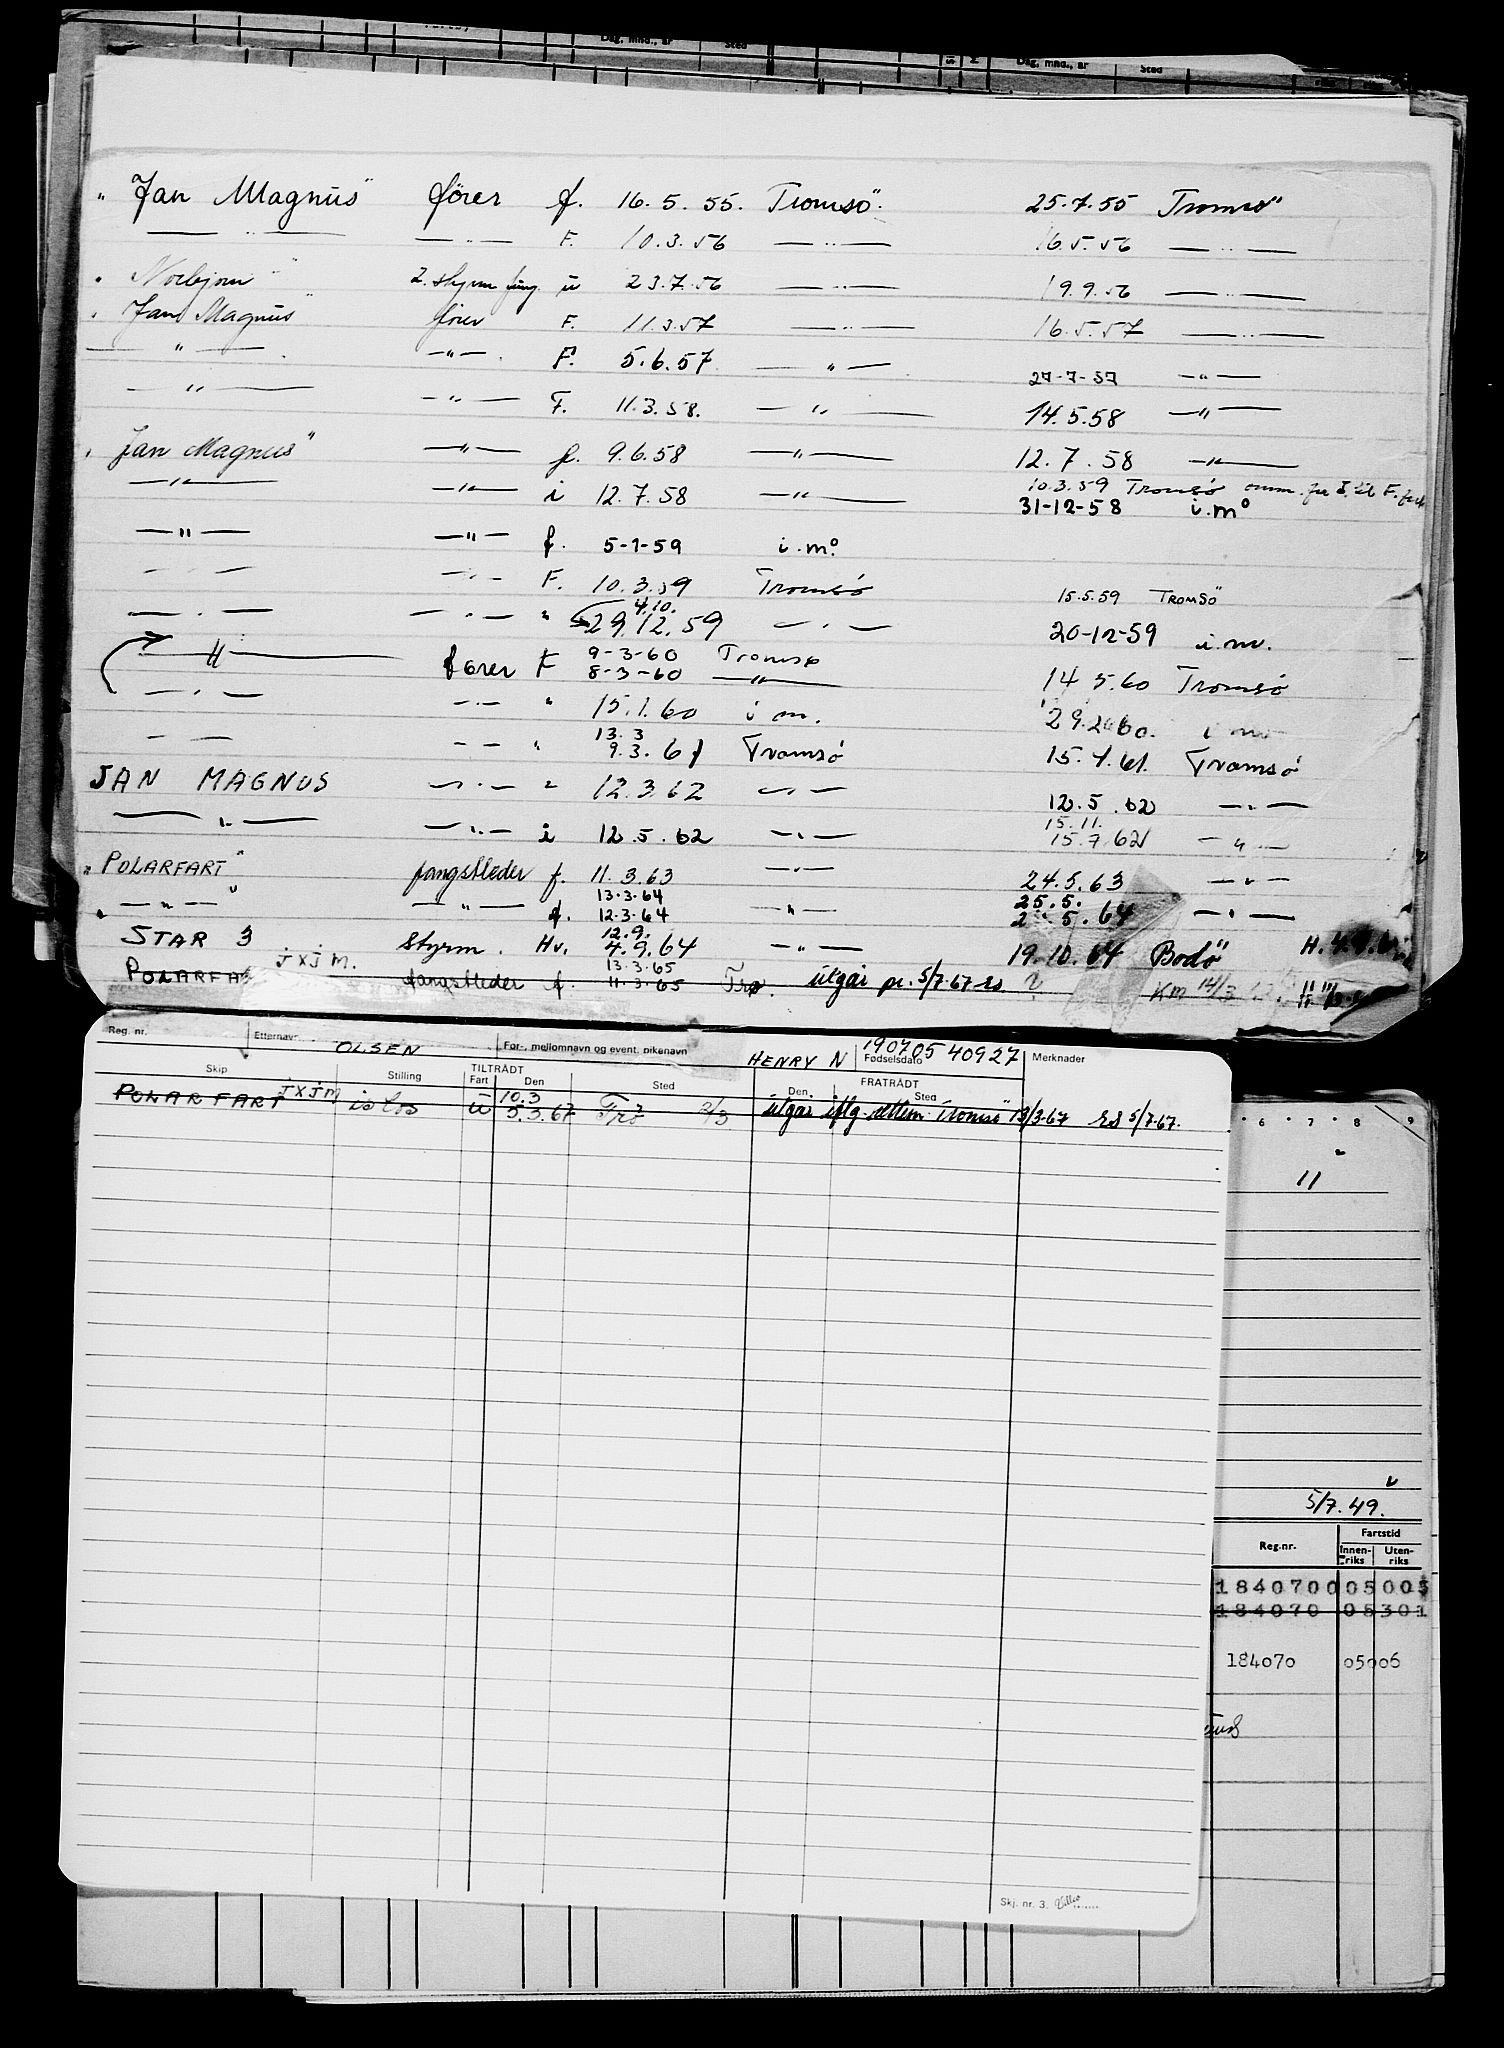 Dag, mnd., år Sted Dag, mnd., år Sted
"Jan Magnus" fører f. 16.5.55. Tromsö. 25.7.55 Tromsö
— " — — " — F. 10.3.56 — " — 16.5.56 — " —
" Norbjørn " 2. styrm fung. u 23.7.56 — " — 19.9.56 — " —
" Jan Magnus" fører F. 11.3.57 — " — 16.5.57 — " —
— " — — " — . F. 5.6.57 — " — 27-7-57 — " —
— " — — " — F. 11.3.58. — " — 14.5.58 — " —
" Jan Magnus" — " — f. 9.6.58 — " — 12.7.58 — " —
10.3.59 Tromsø omm. fra I. til F. fart
— " — — " — i 12.7.58 — " — 31-12-58 i.mº
— " — — " — f. 5-1-59 i.mº.
— " — — " — F. 10.3.59 Tromsø 15.5.59 TROMSÖ
4.10.
— " — — " — " 29.12.59 — " — 20-12-59 i.m.
9-3-60 Tromsø
— " — fører F 8-3-60 — " — 14 5.60 Tromsø
— " — — " — " 15.1.60 i m. 29.2.60. i m
13.3
— " — — " — " 9.3.61 Tromsø 15.4.61. Tromsø
JAN MAGNUS — " — " 12.3.62 — " — 12.5.62 — " —
15.11.
— " — — " — i 12.5.62 — " — 15.7.62 — " —
"POLARFART" fangstleder f. 11.3.63 — " — 24.5.63 — " —
13.3.64 25.5.
" — " — " — " — f. 12.3.64 — " — 2 .5.64 — " —
12.9.
STAR 3 Styrm. Hv. 4.9.64 — " — 19.10.64 Bodö" H.
13.3.65
POLARFA JXJM. fangstleder f. 11.3.65 Trø. utgår pr. 5/7-67 rs ? Km 14/3
Reg. nr. Etternavn OLSEN For-, mellomnavn og event. pikenavn HENRY N Fødselsdato 190705 40927 Merknader
Skip Stilling TILTRÅDT Fart Den Sted FRATRÅDT Den Sted
10.3
POLARFART JXJM islos u 5.3.67 Trø 2/3 utgår iflg attem Tromsø 13/3-67 rs 5/7-67.
6 7 8 9
11
5/7.49.
Reg.nr. Fartstid
Innen-riks Uten-riks
184070 005005
184070 05301
184070 05006
Skj. nr. 3.